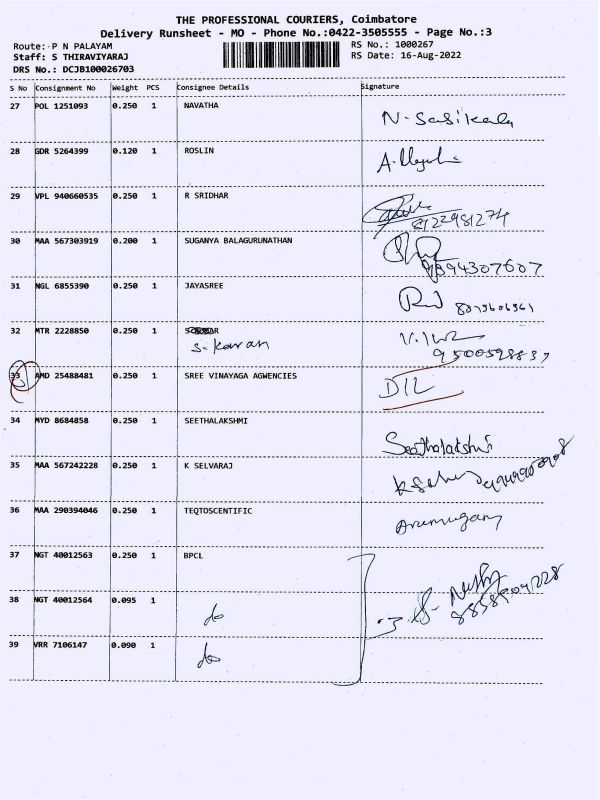 THE PROFESSIONAL COURIERS, Coimbatore
Delivery Runsheet - MO - Phone No.:0422-3505555 - Page No.:3
Route: P N PALAYAM RS No.: 1000267
Staff: S THIRAVIYARAJ RS Date: 16-Aug-2022
DRS No.: DCJB100026703
S No Consignment No Weight PCS Consignee Details Signature
27 POL 1251093 0.250 1 NAVATHA
N- Sasikala
28 GDR 5264399 0.120 1 ROSLIN
29 VPL 940660535 0.250 1 R SRIDHAR
8122981274
30 MAA 567303919 0.200 1 SUGANYA BALAGURUNATHAN
9894307607
31 NGL 6855390 0.250 1 JAYASREE
32 MTR 2228850 0.250 1
S- Karan
33 AMD 25488481 0.250 1 SREE VINAYAGA AGWENCIES
D/L
34 MYD 8684858 0.250 1 SEETHALAKSHMI
Seethalakshmi
35 MAA 567242228 0.250 1 K SELVARAJ
36 MAA 290394046 0.250 1 TEQTOSCENTIFIC
Arumugam
37 NGT 40012563 0.250 1 BPCL
38 NGT 40012564 0.095 1
do
39 VRR 7106147 0.090 1
do